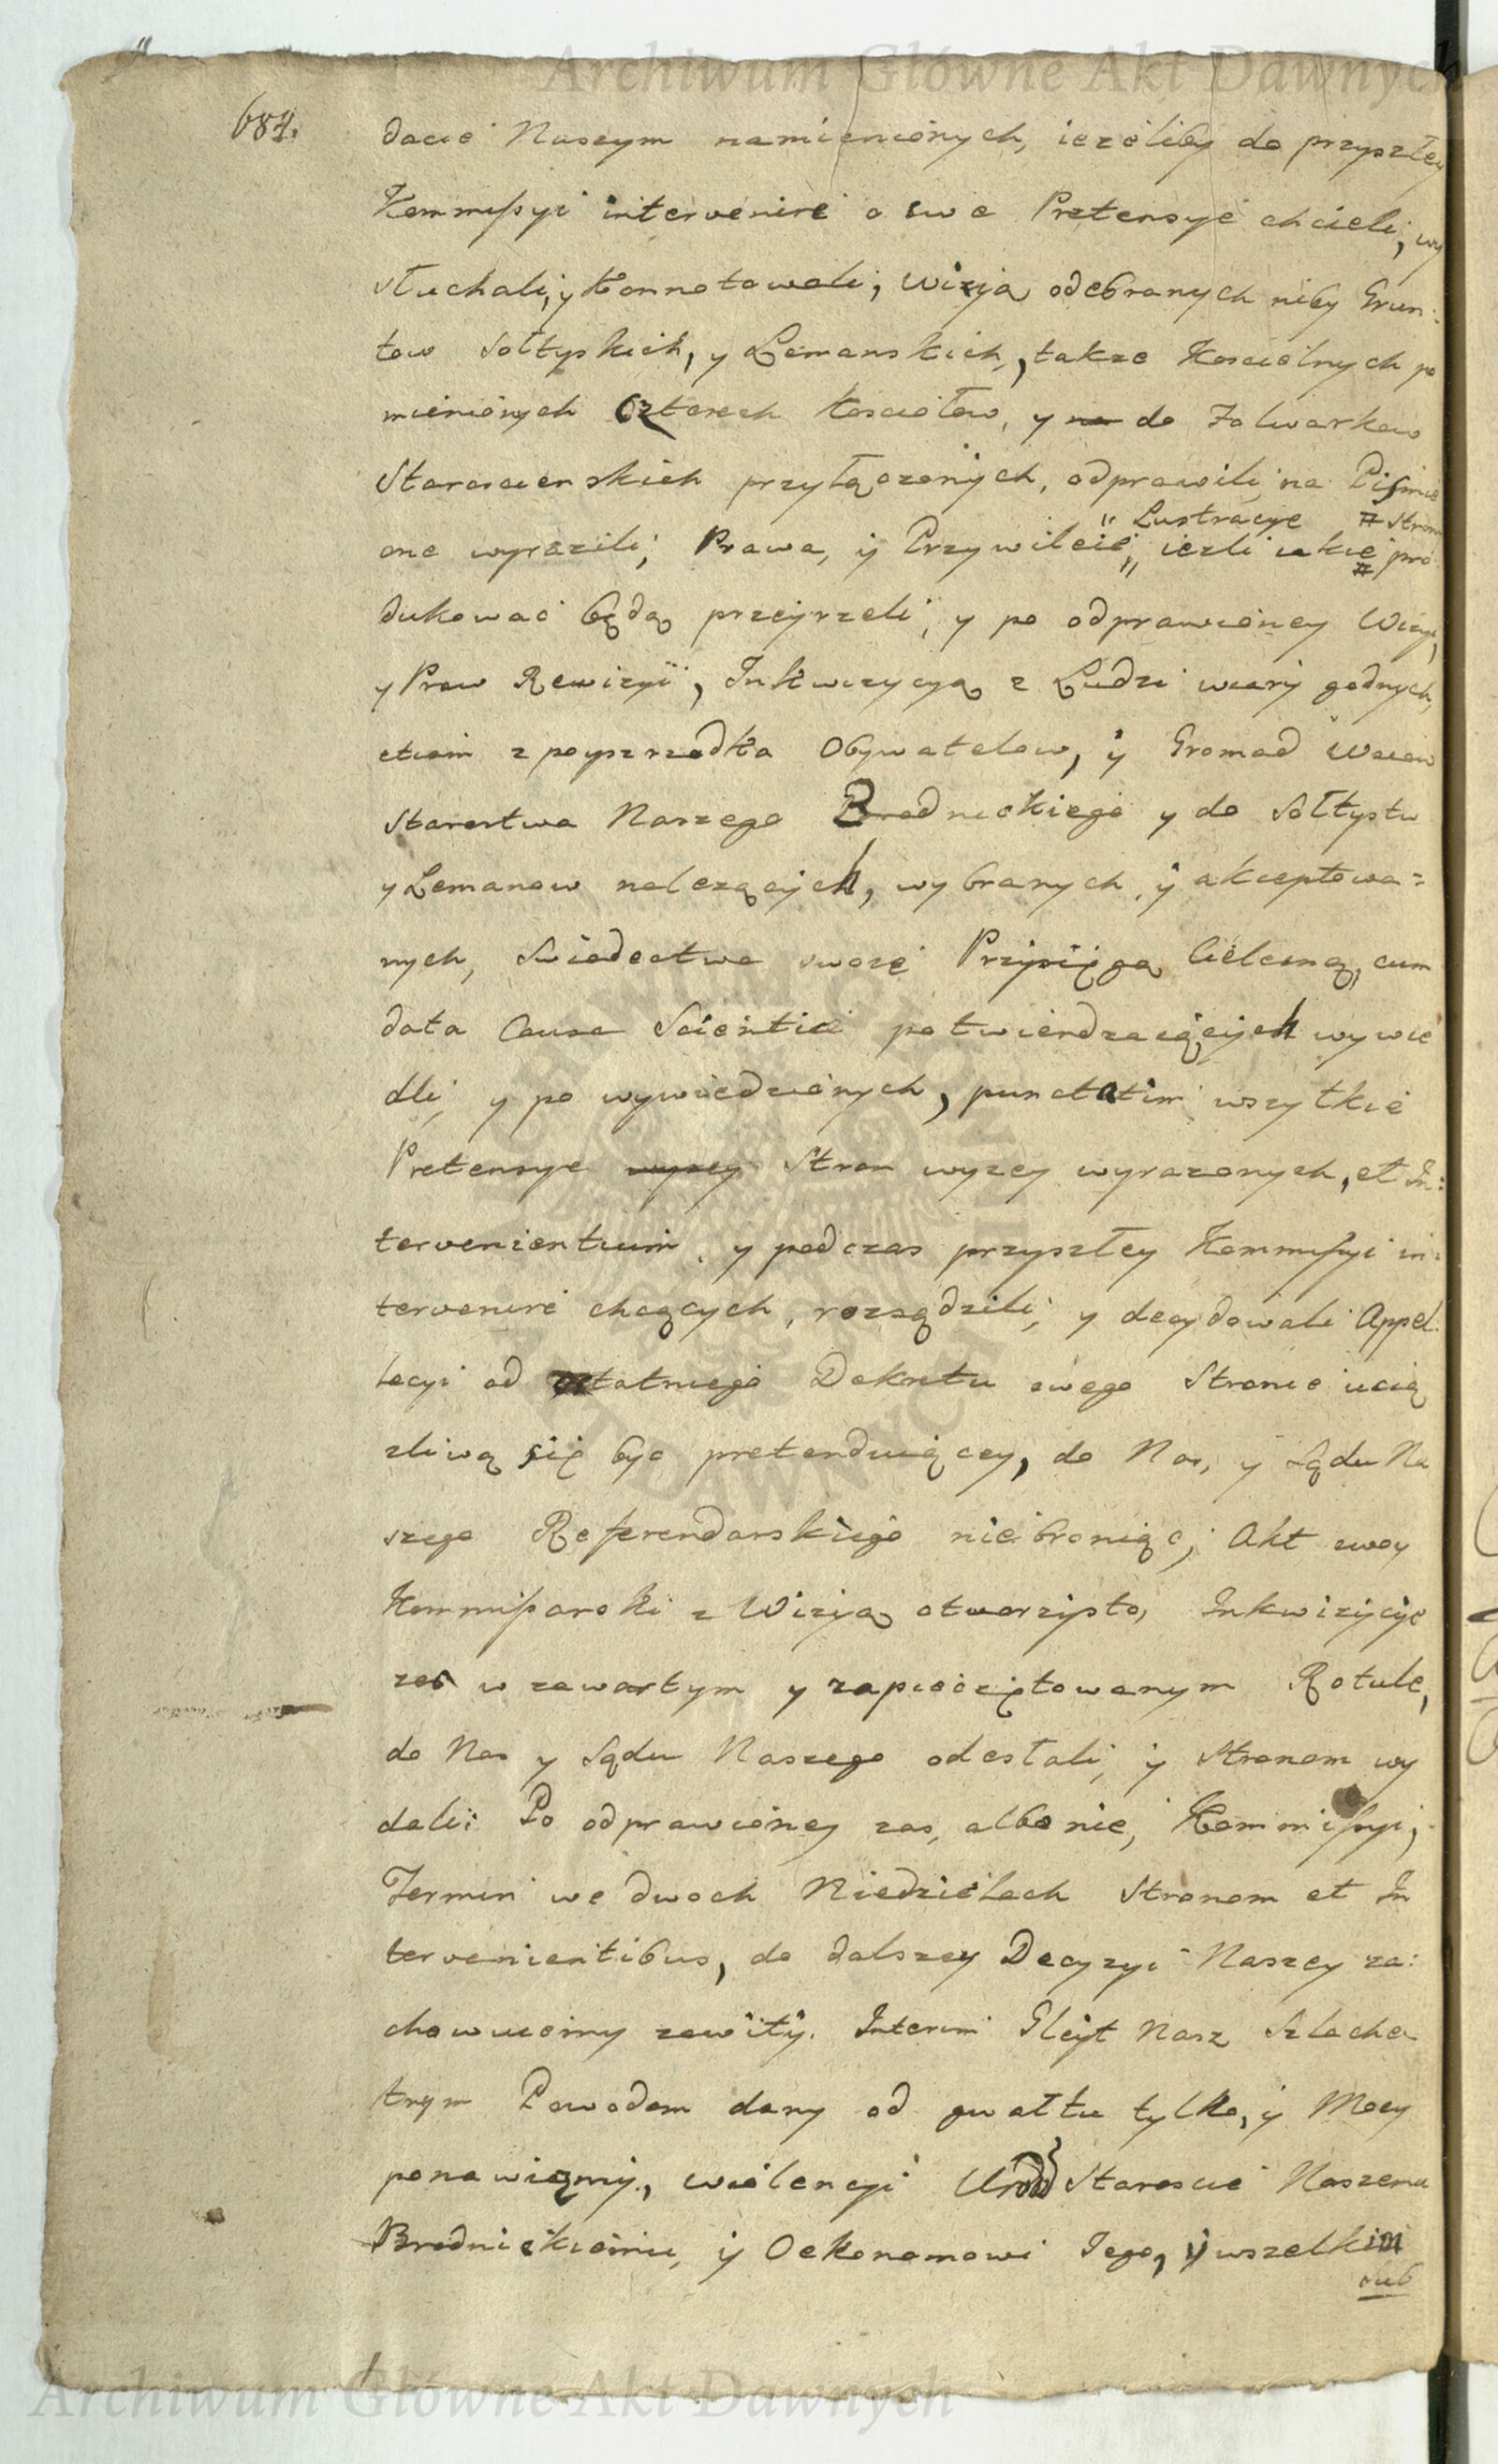 Archiwum Główne Akt Dawnych
684.
dacie Naszym namienionych, ieżeliby do przyszłey
Kommissyi intervenire o swe Pretensye chcieli, wy
słuchali, y konnotowali; Wizyą odebranych niby Grun:
tow Sołtyskich, y Lemanskich, także Koscielnych po
mienionych czterech kosciołow, y na do Folwarkow
Starościenskich przyłączonych, odprawili, na Pismie
" Lustracye # Strony
one wyrazili; Prawa, y Przywileie, " ieżli iakie # pro
dukować będą przeyrzeli, y po odprawioney Wizyi,
y Praw Rewizyi, Inkwizycyą z Ludzi wiary godnych,
etiam z poyszrzodka Obywatelow, y Gromad Wsiow
Starostwa Naszego Brodnickiego y do Sołtystw
y Lemanow należących, wybranych, y akceptowa=
nych, Swiadectwa swoie Przysięgą Cielesną, cum
data Causa Scientiae potwierdzaiących wywie
dli, y po wywiedzionych, punctatim wszytkie
Pretensye wyzey Stron wyzey wyrazonych, et In:
tervenientium, y podczas przyszłey Kommissyi in:
tervenire chcących, rozsądzili, y decydowali Appel:
lacyi od ostatniego Dekretu swego Stronie ucią
zliwą się byc pretenduiącey, do Nas, y Sądu Na
szego Referendarskiego niebroniąc; Akt swoy
Kommissarski z Wizyą otworzysto, Inkwizycye
zas w zawartym y zapieczętowanym Rotule,
do Nas y Sądu Naszego odesłali, y Stronom wy
dali: Po odprawioney zas, albo nie, Kommissyi,
Termin we dwoch Niedzielach Stronom et In
tervenientibus, do dalszey Decyzyi Naszey za:
chowuiemy zawity. Interim Gleyt Nasz Szlache
tnym Powodom dany od gwałtu tylko, y Mocy
ponawiamy, wiolencyi Urod Staroscie Naszemu
Brodnickiemu, y Oekonomowi Iego, y wszelkim
sub
Archiwum Główne Akt Dawnych